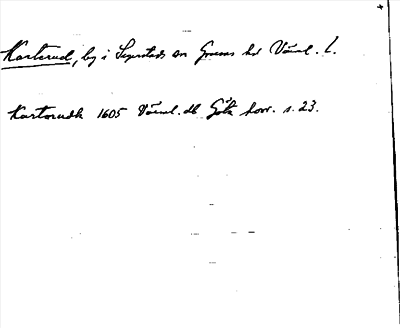 Karterud, by i Segerstads sn Grums hd Värml. l.
Kartorudh 1605 Värml. db Götk horr. s. 23.